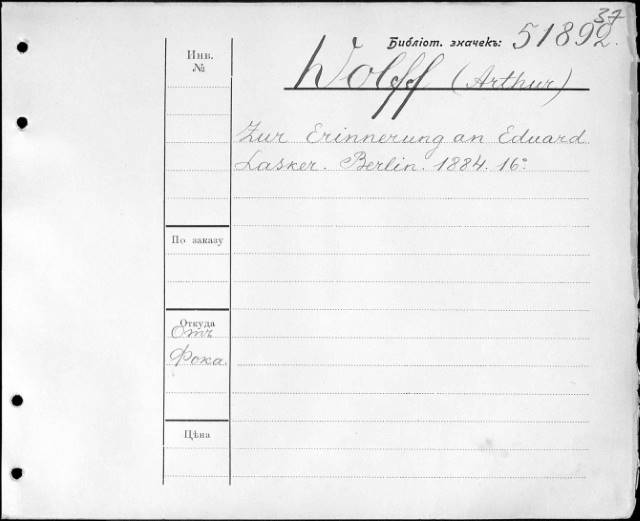 37
Библіот. значекъ: 51892.
Инв.
№
Wolff (Arthur)
Zur Erinnerung an Eduard
Lasker. Berlin. 1884. 16°
По заказу
Откуда
Отъ
Фока.
Цѣна